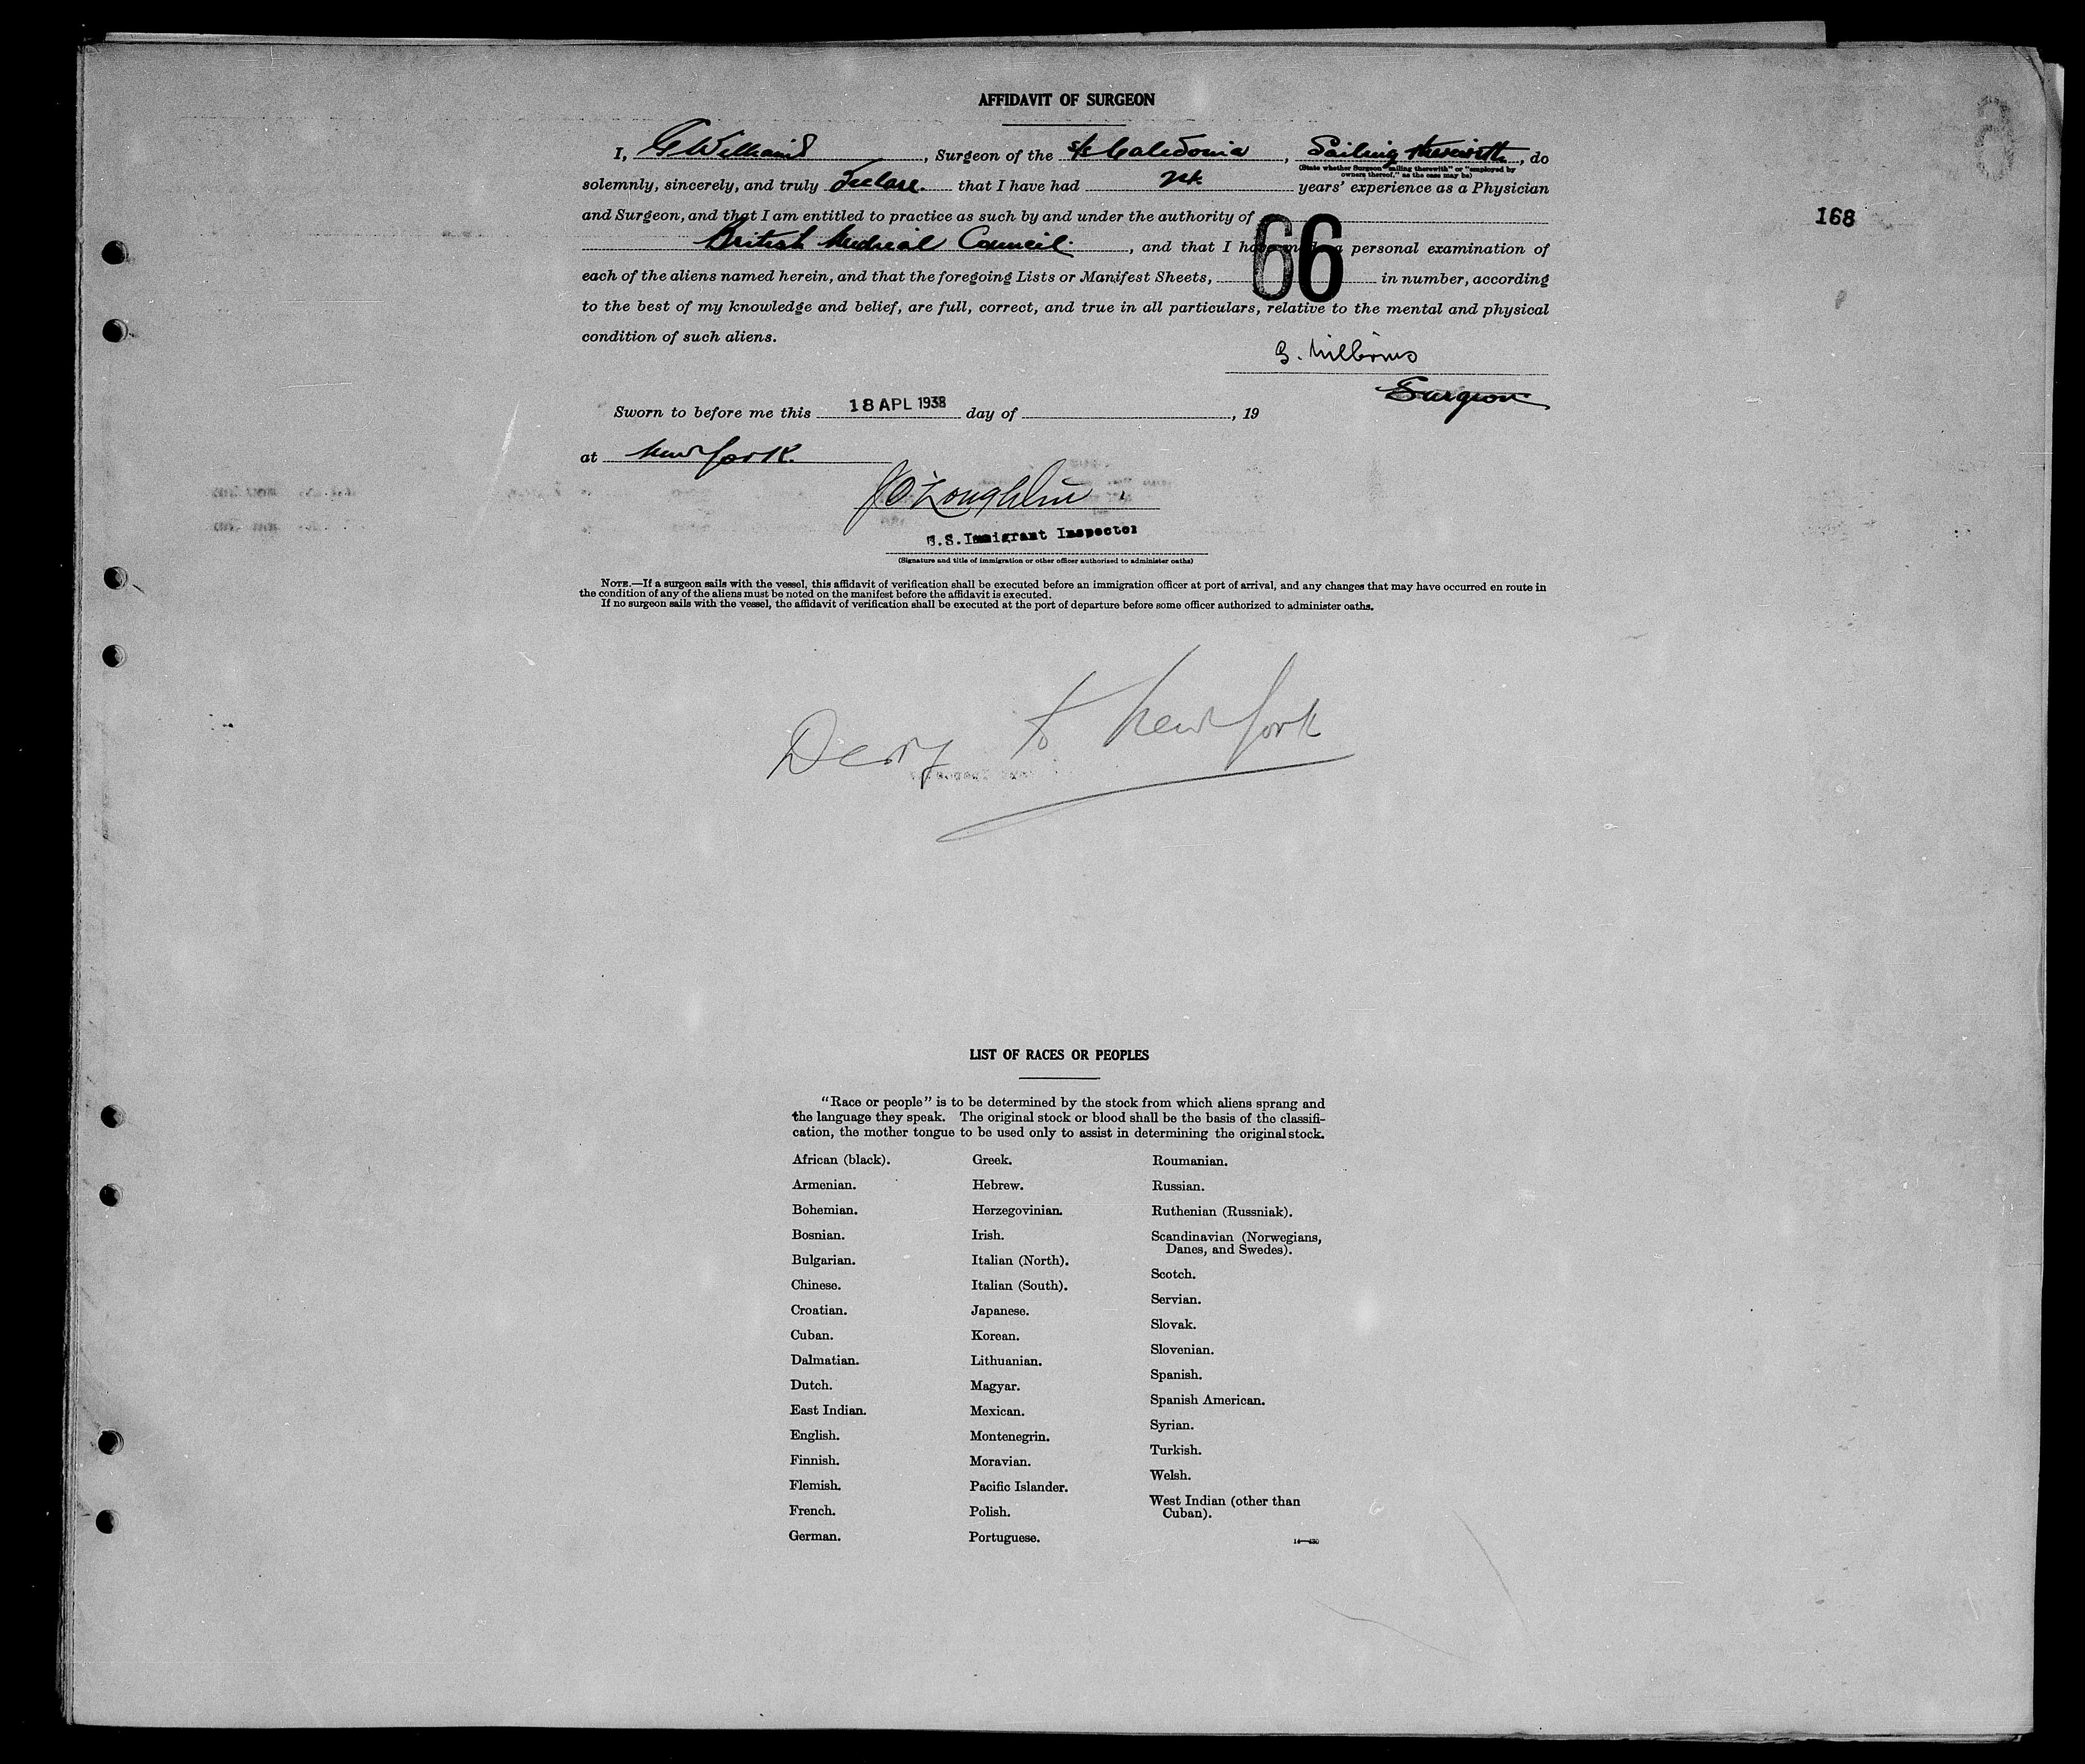 AFFIDAVIT OF SURGEON
I, G Williams, Surgeon of the s/s Caledonia, Sailing therewith, do
(State whether Surgeon "sailing therewith" or "employed by
owners thereof," as the case may be)
solemnly, sincerely, and truly declare. that I have had years' experience as a Physician
and Surgeon, and that I am entitled to practice as such by and under the authority of
British Medical Council., and that I have made a personal examination of
each of the aliens named herein, and that the foregoing Lists or Manifest Sheets, 66 in number, according
to the best of my knowledge and belief, are full, correct, and true in all particulars, relative to the mental and physical
condition of such aliens.
168
G. Williams
Surgeon
Sworn to before me this 18 APL 1938 day of , 19
at New York.
J O'Loughlin
U.S. Immigrant Inspector
(Signature and title of immigration or other officer authorized to administer oaths)
NOTE.—If a surgeon sails with the vessel, this affidavit of verification shall be executed before an immigration officer at port of arrival, and any changes that may have occurred en route in
the condition of any of the aliens must be noted on the manifest before the affidavit is executed.
If no surgeon sails with the vessel, the affidavit of verification shall be executed at the port of departure before some officer authorized to administer oaths.
Derry to New York
LIST OF RACES OR PEOPLES
"Race or people" is to be determined by the stock from which aliens sprang and
the language they speak. The original stock or blood shall be the basis of the classifi-
cation, the mother tongue to be used only to assist in determining the original stock.
African (black).
Armenian.
Bohemian.
Bosnian.
Bulgarian.
Chinese.
Croatian.
Cuban.
Dalmatian.
Dutch.
East Indian.
English.
Finnish.
Flemish.
French.
German.
Greek.
Hebrew.
Herzegovinian.
Irish.
Italian (North).
Italian (South).
Japanese.
Korean.
Lithuanian.
Magyar.
Mexican.
Montenegrin.
Moravian.
Pacific Islander.
Polish.
Portuguese.
Roumanian.
Russian.
Ruthenian (Russniak).
Scandinavian (Norwegians,
Danes, and Swedes).
Scotch.
Servian.
Slovak.
Slovenian.
Spanish.
Spanish American.
Syrian.
Turkish.
Welsh.
West Indian (other than
Cuban).